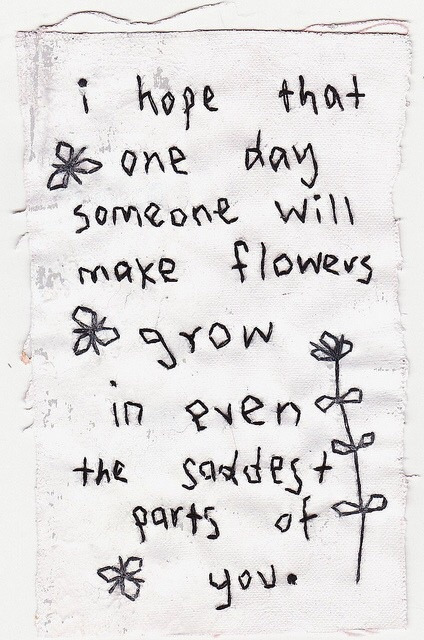 i hope that
one day
someone will
make flowers
grow
in even
the saddest
parts of
you.